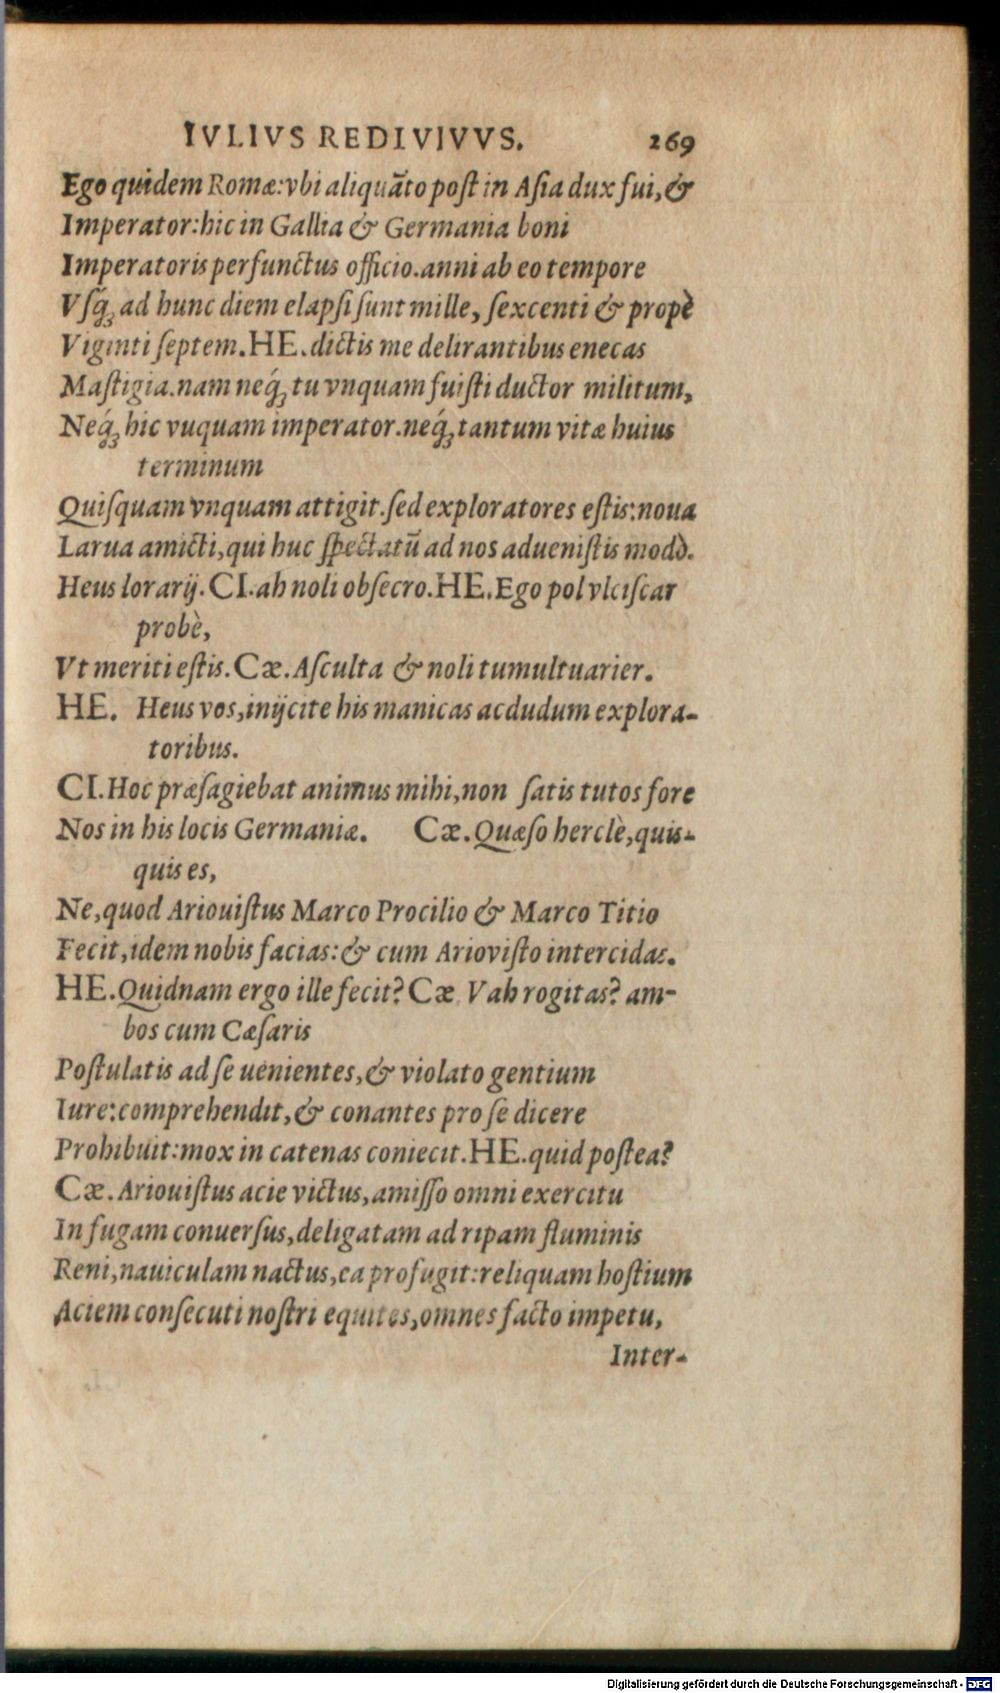 IVLIVS REDIVIVVS. 269
Ego quidem Romæ: vbi aliquãto poſt in Aſia dux fui, &
Imperator: hic in Gallia & Germania boni
Imperatoris perfunctus officio. anni ab eo tempore
Vſq́ꝫ ad hunc diem elapſi ſunt mille, ſexcenti & propè
Viginti ſeptem. HE. dictis me delirantibus enecas
Maſtigia. nam neq́ꝫ tu vnquam fuiſti ductor militum,
Neq́ꝫ hic vuquam imperator. neq́ꝫ tantum vitæ huius
terminum
Quiſquam vnquam attigit. ſed exploratores eſtis: noua
Larua amicti, qui huc ſpectatũ ad nos adueniſtis modò.
Heus lorarij. CI. ah noli obſecro. HE. Ego pol vlciſcar
probè,
Vt meriti eſtis. Cæ. Aſculta & noli tumultuarier.
HE. Heus vos, inijcite his manicas acdudum explora-
toribus.
CI. Hoc præſagiebat animus mihi, non ſatis tutos fore
Nos in his locis Germaniæ. Cæ. Quæſo herclè, quis-
quis es,
Ne, quod Ariouiſtus Marco Procilio & Marco Titio
Fecit, idem nobis facias: & cum Arioviſto intercidas.
HE. Quidnam ergo ille fecit? Cæ. Vah rogitas? am-
bos cum Cæſaris
Poſtulatis ad ſe uenientes, & violato gentium
Iure: comprehendit, & conantes pro ſe dicere
Prohibuit: mox in catenas coniecit. HE. quid poſtea?
Cæ. Ariouiſtus acie victus, amiſſo omni exercitu
In fugam conuerſus, deligatam ad ripam fluminis
Reni, nauiculam nactus, ea profugit: reliquam hoſtium
Aciem conſecuti noſtri equites, omnes facto impetu,
Inter-
Digitalisierung gefördert durch die Deutsche Forschungsgemeinschaft - DFG